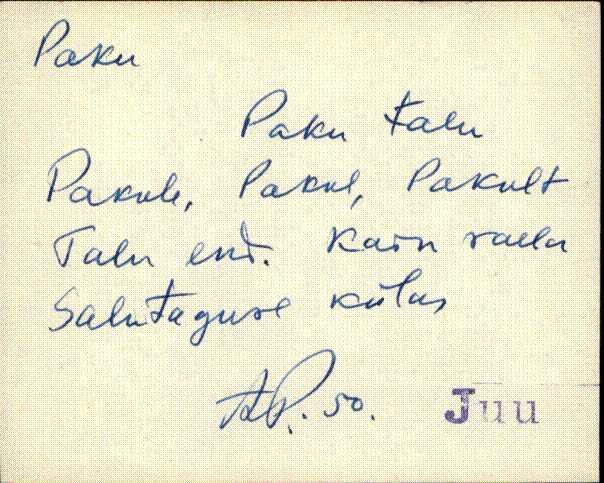 Paku
Paku talu
Pakule, Pakul, Pakult
Talu end. Kaiu valla
Salutaguse külas
AP. 50. Juu